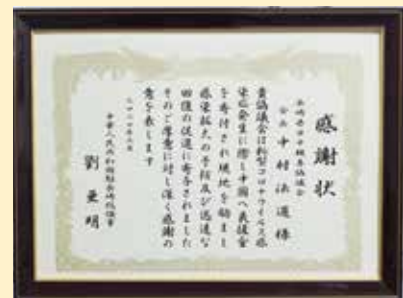 感謝状
長崎県日中親善協議会
会長 中村法道 様
貴協議会は新型コロナウイルス感
染症発生に際し中国へ義援金
を寄付され現地を励まし
感染拡大の予防及び迅速な
回復の促進に寄与されました
そのご厚意に対し深く感謝の
意を表します
二〇二〇年六月
中華人民共和国駐長崎総領事
劉亜明